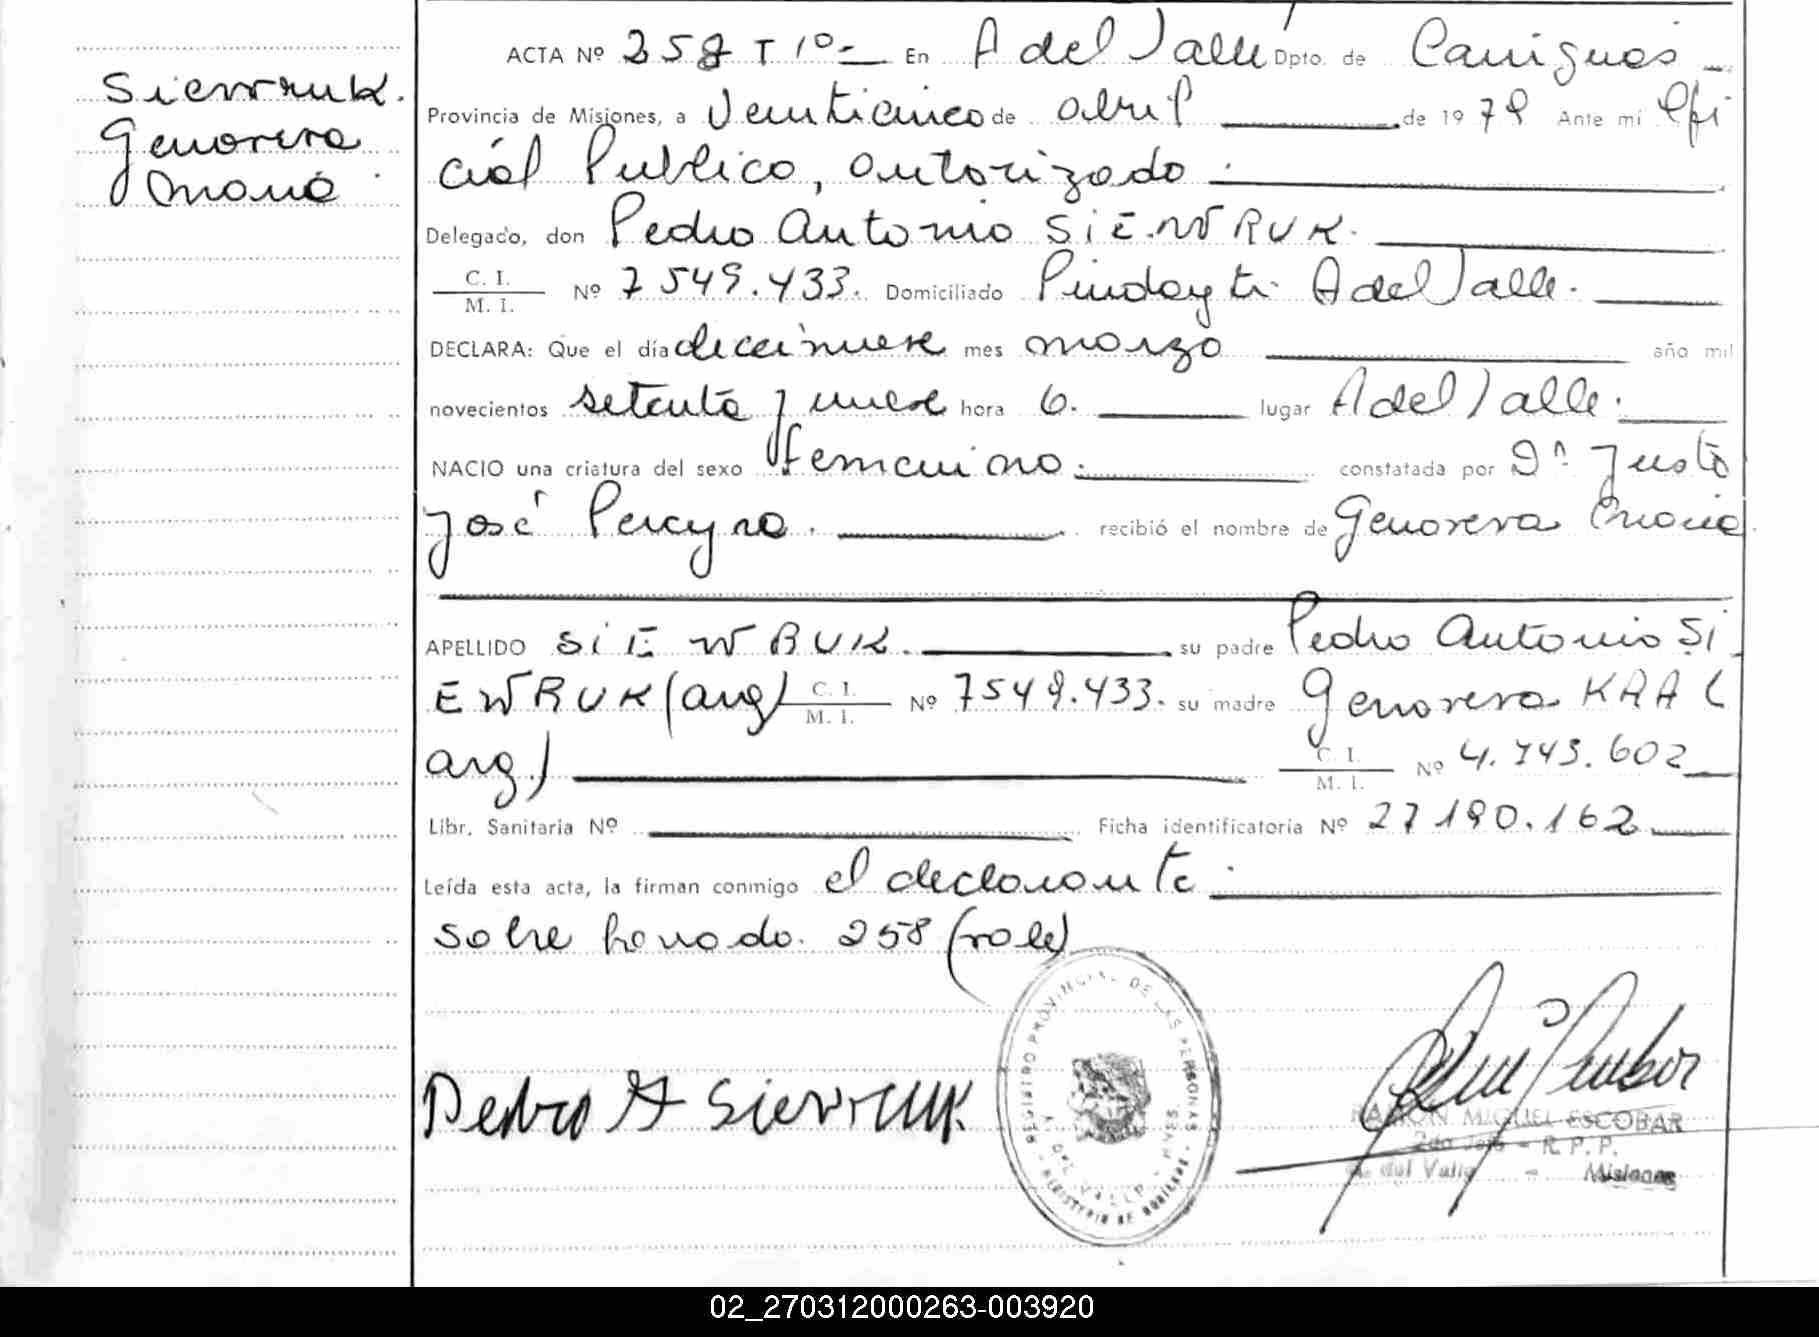 Siewruk.
Genoveva
Maria
ACTA Nº 258 T 1º - En A del Valle Dpto. de Cainguas
Provincia de Misiones, a Veinticinco de abril de 1979 Ante mí Ofi
cial Publico, autorizado
Delegado, don Pedro Antonio SIEWRUK.
C. I.
M. I.
Nº 7549.433. Domiciliado Pindayti A del Valle.
DECLARA: Que el día diecinueve mes marzo año mil
novecientos setenta y nueve hora 6. lugar A del Valle.
NACIO una criatura del sexo femenino. constatada por Dn Justo
José Pereyra. recibió el nombre de Genoveva Maria
APELLIDO SIEWRUK. su padre Pedro Antonio SI
EWRUK (arg) C. I. M. I. Nº 7549.433. su madre Genoveva KRAL (
arg.) C. I. M. I. Nº 4.743.602
Libr. Sanitaria Nº Ficha identificatoria Nº 27190.162
Leída esta acta, la firman conmigo el declarante
sobre borrado. 258 (vale)
Pedro A Siewruk
REGISTRO PROVINCIAL DE LAS PERSONAS
A. DEL VALLE - MNES
MINISTERIO DE GOBIERNO
RAMON MIGUEL ESCOBAR
2do Jefe - R. P. P.
A. del Valle - Misiones
02_270312000263-003920